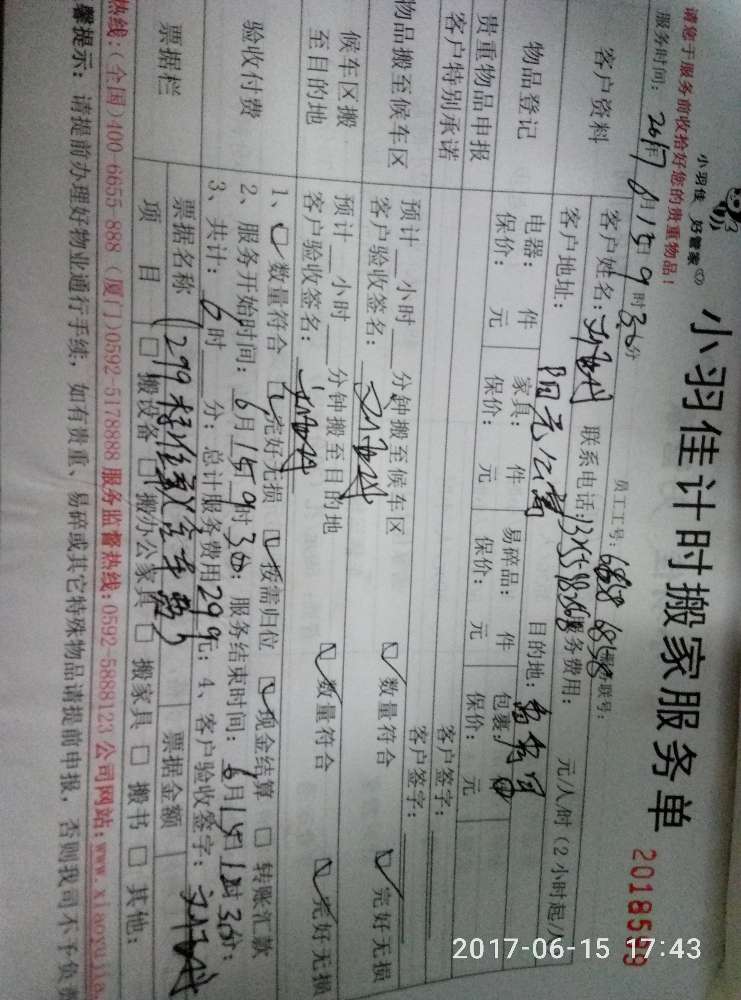 小羽佳 好管家
小羽佳计时搬家服务单
2018559
请您于服务前收拾好您的贵重物品！
员工工号：
服务时间：2017年6月15日9时30分
客户资料
客户姓名： 联系电话： 服务费用： 元/人/时（2小时起/
客户地址：阳元公寓 目的地：
物品登记
电器： 件 家具： 件 易碎品： 件 包裹：
保价： 元 保价： 元 保价： 元 保价： 元
贵重物品申报 客户签字：
客户特别承诺 客户签字：
物品搬至候车区
预计 小时 分钟搬至候车区 数量符合 完好无损
客户验收签名：
候车区搬至目的地
预计 小时 分钟搬至目的地 数量符合 完好无损
客户验收签名：
验收付费
1、数量符合 完好无损 按需归位 现金结算 转账汇款
2、服务开始时间：6月15日9时30分；服务结束时间：6月15日 时30分；
3、共计： 时 分；总计服务费用299元；4、客户验收签字：
票据栏
票据名称 票据金额
项目 搬设备 搬办公家具 搬家具 搬书 其他：
热线：（全国）400-6655-888（厦门）0592-5178888 服务监督热线：0592-5888123 公司网站：www.xiaoyujia.
馨提示：请提前办理好物业通行手续，如有贵重、易碎或其它特殊物品请提前申报，否则我司不予负
2017-06-15 17:43